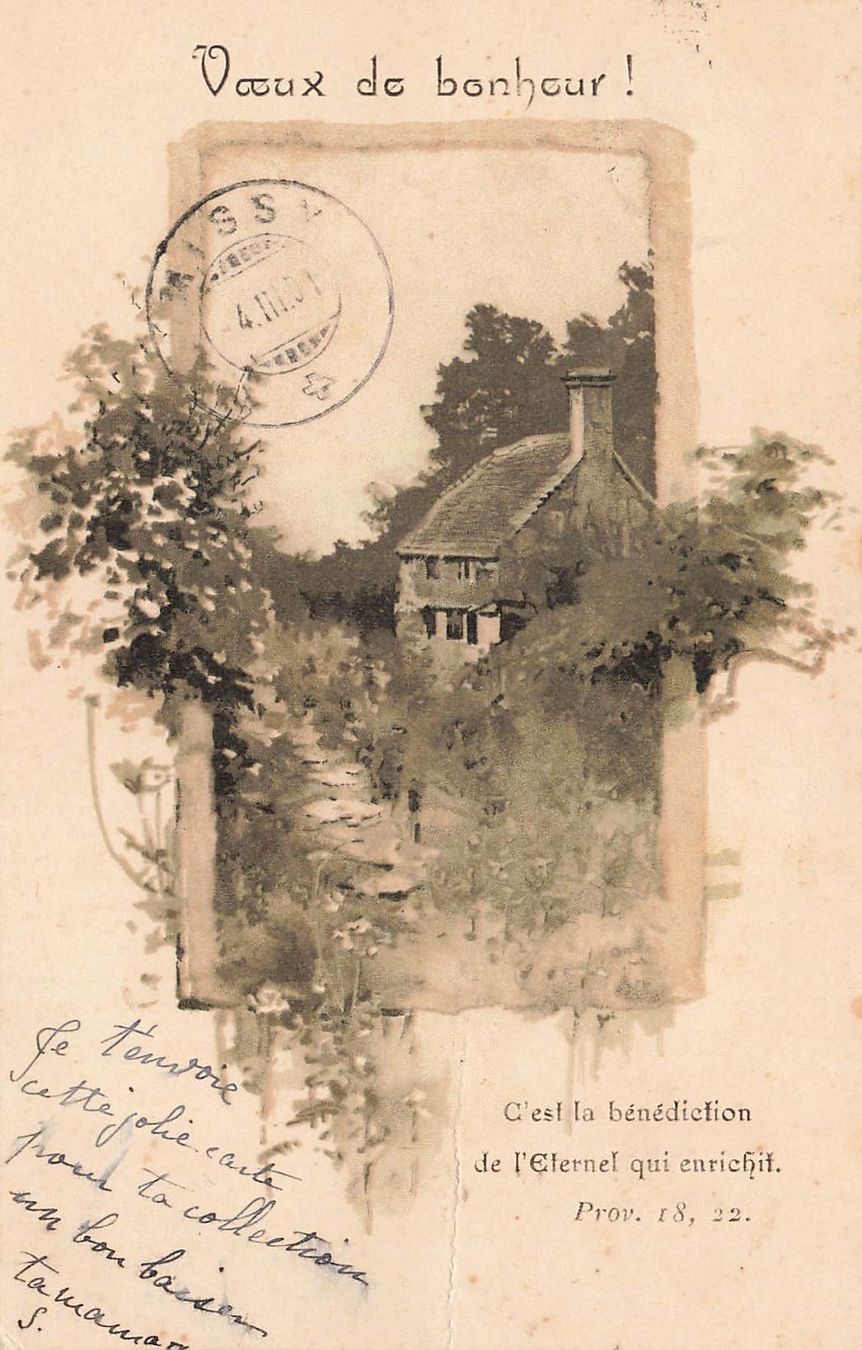 Vœux de bonheur !
MISSY
4.III.01
Je t'envoie
cette jolie carte
pour ta collection
un bon baiser
ta maman
S.
C'est la bénédiction
de l'Eternel qui enrichit.
Prov. 18, 22.